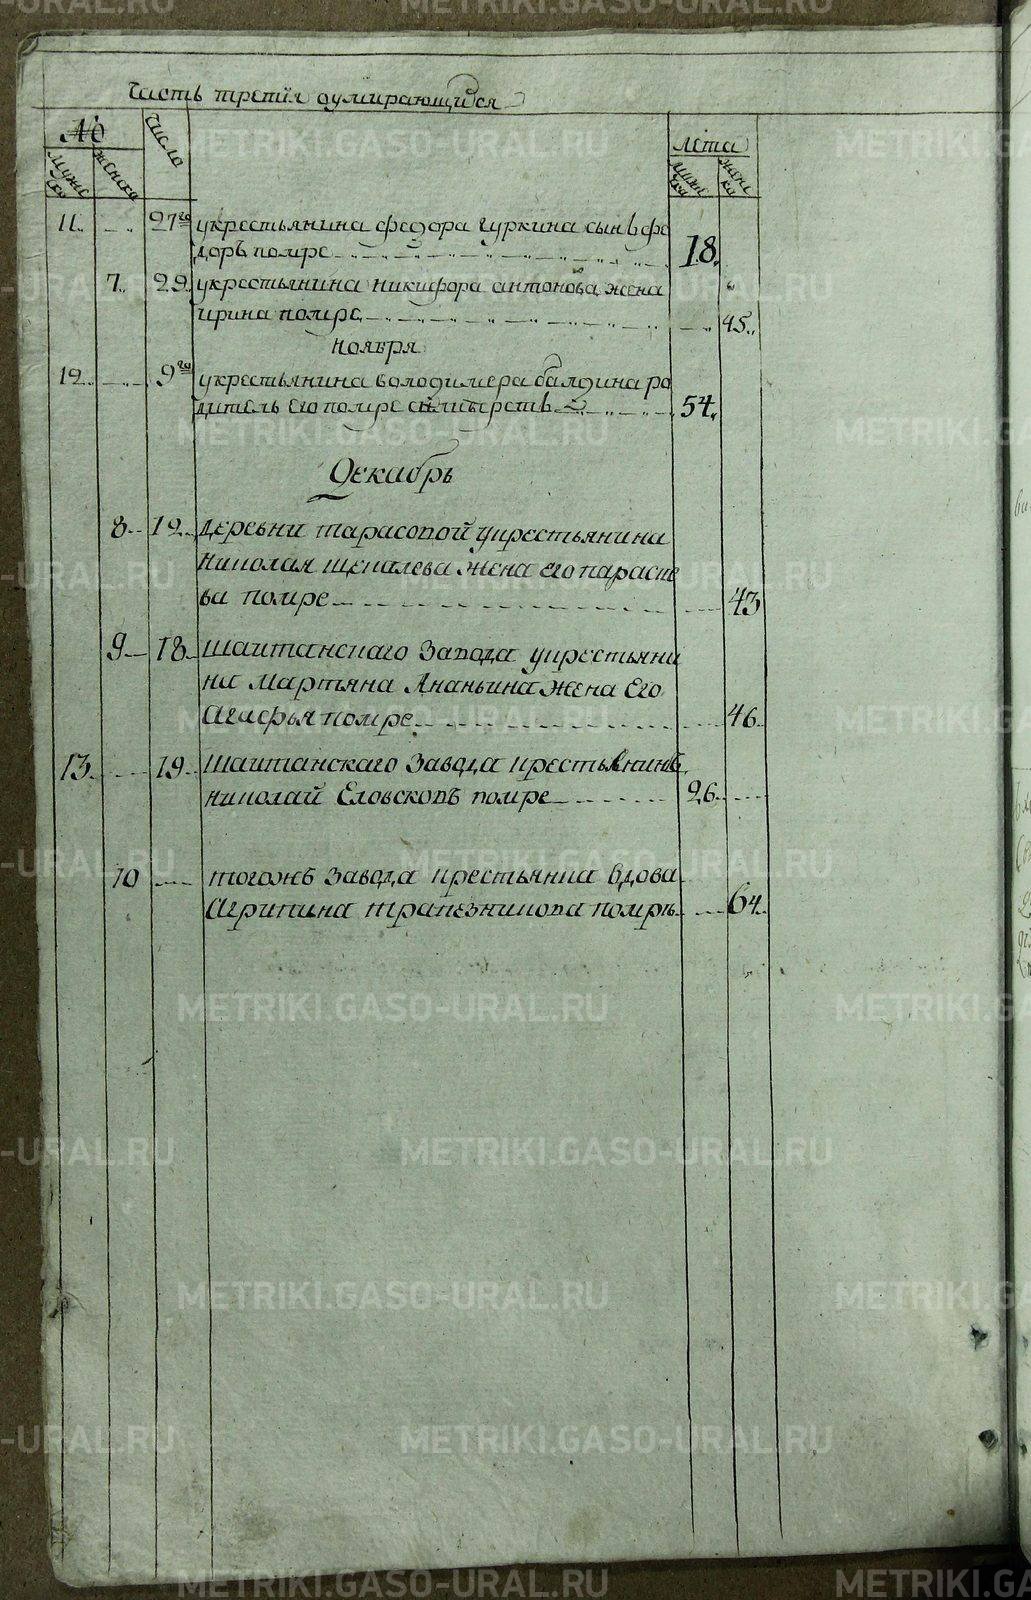 METRIKI.GASO-URAL.RU
Часть третїя оумирающихся
№
число
лета
мужеска
женска
мужеска
женска
11. 27го укрестьянина федора гуркина сынъ фе
доръ помре 18.
7. 29. укрестьянина никифора антонова жена
ирина помре 45.
ноября
12. 9го укрестьянина володимера балдина ро
дитель его помре 54.
Декабрь
8 12 деревни тарасовой укрестьянина
николая щепалева жена его параске
ва помре 43
9 18 шаитанскаго завода укрестьяни
на Мартьяна Ананьина жена Его
Агаѳья помре 46
13. 19 шаитанскаго завода крестьянинъ
николай Еловсковъ помре 26
10 тогожъ завода крестьянка вдова
Агрипина трапезникова помрѣ 64